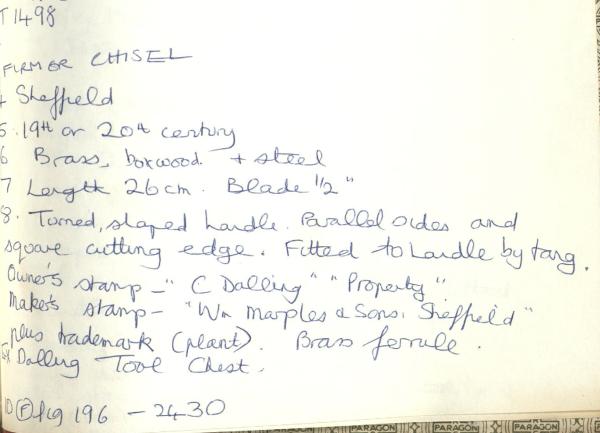 T1498
FIRMER CHISEL
4 Sheffield
5. 19th or 20th century
6 Brass, boxwood + steel
7 Length 26cm. Blade 1/2"
8. Turned, shaped handle. Parallel sides and
square cutting edge. Fitted to handle by tang.
Owner's stamp - "C Dalling" "Property"
Maker's stamp - "Wm Marples & Sons, Sheffield"
plus trademark (plant). Brass ferrule.
Dalling Tool Chest.
fig 196 - 2430
PARAGON PARAGON PARAGON